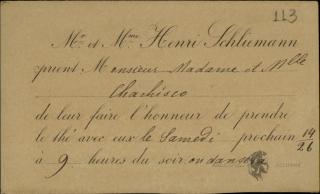 113
Mr. et Mme. Henri Schliemann
prient Monsieur Madame et Mlle
de leur faire l'honneur de prendre
le thé avec eux le Samedi prochain 14/26
à 9 heures du soir. on dansera